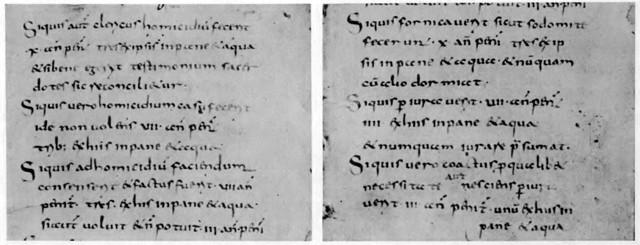 Siquis aut clericus homicidiū fecerit
x· an̄ penī tres exipsis inpane & aqua
& sibene egerit testimonium sacer
dotes sic reconcilietur·
Siquis vero homicidium casu fecerit
idē non volens vii· an̄ penī
trib: exhis inpane & aqua
Siquis adhomicidiū faciendum
consenserit & factus fuerit vii an̄
penit̄· tres· exhis inpane & aqua
sicut voluit & n̄ potuit· iii an̄ penī
potuit iii an̄ penī
Siquis fornicaverit sicut sodomite
fecerun̄t· x an̄ penī tres exip
sis inpane & aqua· & nūquam
cū alio dormiat·
Siquis p̄iuraverit· vii· an̄ penī
iiii exhis inpane & aqua
& numquam iurare p̄sumat·
Siquis vero coactus p̄qualib&
necessitate aut nesciens p̄iura
verit iii an̄ penit̄ unū exhis in
pane & aqua